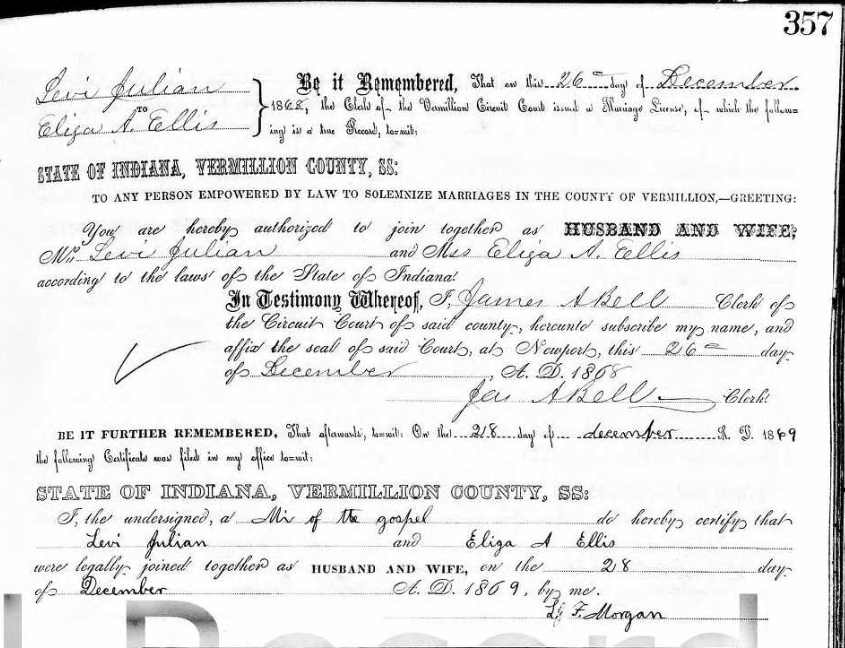 357
Levi Julian
TO
Eliza A. Ellis
Be it Remembered, That on this 26 day of December
1868, the Clerk of the Vermillion Circuit Court issued a Marriage License, of which the follow=
ing is a true Record, to=wit:
STATE OF INDIANA, VERMILLION COUNTY, SS:
TO ANY PERSON EMPOWERED BY LAW TO SOLEMNIZE MARRIAGES IN THE COUNTY OF VERMILLION,—GREETING:
You are hereby authorized to join together as HUSBAND AND WIFE,
Mr. Levi Julian and Miss Eliza A. Ellis
according to the laws of the State of Indiana.
In Testimony Whereof, I, James A Bell Clerk of
the Circuit Court of said county, hereunto subscribe my name, and
affix the seal of said Court, at Newport, this 26 day
of December, A. D. 1868
Jas A Bell Clerk
BE IT FURTHER REMEMBERED, That afterwards, to=wit: On the 28 day of december A. D. 1869
the following Certificate was filed in my office to=wit:
STATE OF INDIANA, VERMILLION COUNTY, SS:
I, the undersigned, a Mir of the gospel do hereby certify that
Levi Julian and Eliza A Ellis
were legally joined together as HUSBAND AND WIFE, on the 28 day
of December A. D. 1869, by me.
F. Morgan